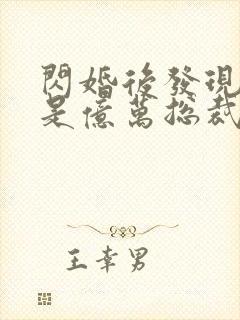 閃婚後發現
是億萬總裁
王幸男